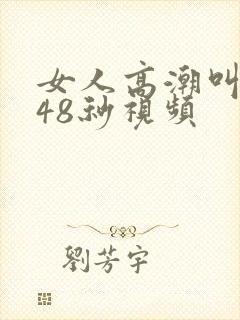 女人高潮叫
48秒視頻
劉芳宇